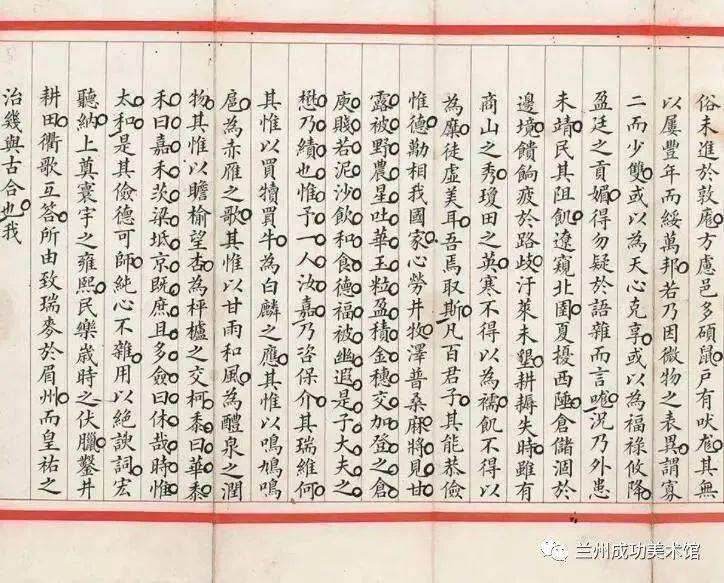 俗未進於敦龐方慮邑多碩鼠戶有吠尨其無
以屢豐年而綏萬邦若乃因微物之表異謂寡
二而少雙或以為天心克享或以為福祿攸降
盈廷之貢媚得勿疑於語雜而言哤況乃外患
未靖民其阻飢遼窺北圉夏擾西陲倉儲涸於
邊境饋餉疲於路歧汙萊未墾耕耨失時雖有
商山之秀瓊田之英寒不得以為襦飢不得以
為糜徒虛美耳吾焉取斯凡百君子其能恭儉
惟德勱相我國家心勞井牧澤普桑麻將見甘
露被野農星吐華玉粒盈積金穗交加登之倉
庾賤若泥沙飲和食德福被幽遐是子大夫之
懋乃績也惟予一人汝嘉乃咨保介其瑞維何
其惟以買犢買牛為白麟之應其惟以鳴鳩鳴
扈為赤雁之歌其惟以甘雨和風為醴泉之潤
物其惟以瞻榆望杏為枰櫨之交柯黍曰華黍
禾曰嘉禾茨梁坻京既庶且多僉曰休哉時惟
太和是其儉德可師純心不雜用以絕諛詞宏
聽納上奠寰宇之雍熙民樂歲時之伏臘鑿井
耕田衢歌互答所由致瑞麥於眉州而皇祐之
治幾與古合也我
兰州成功美术馆